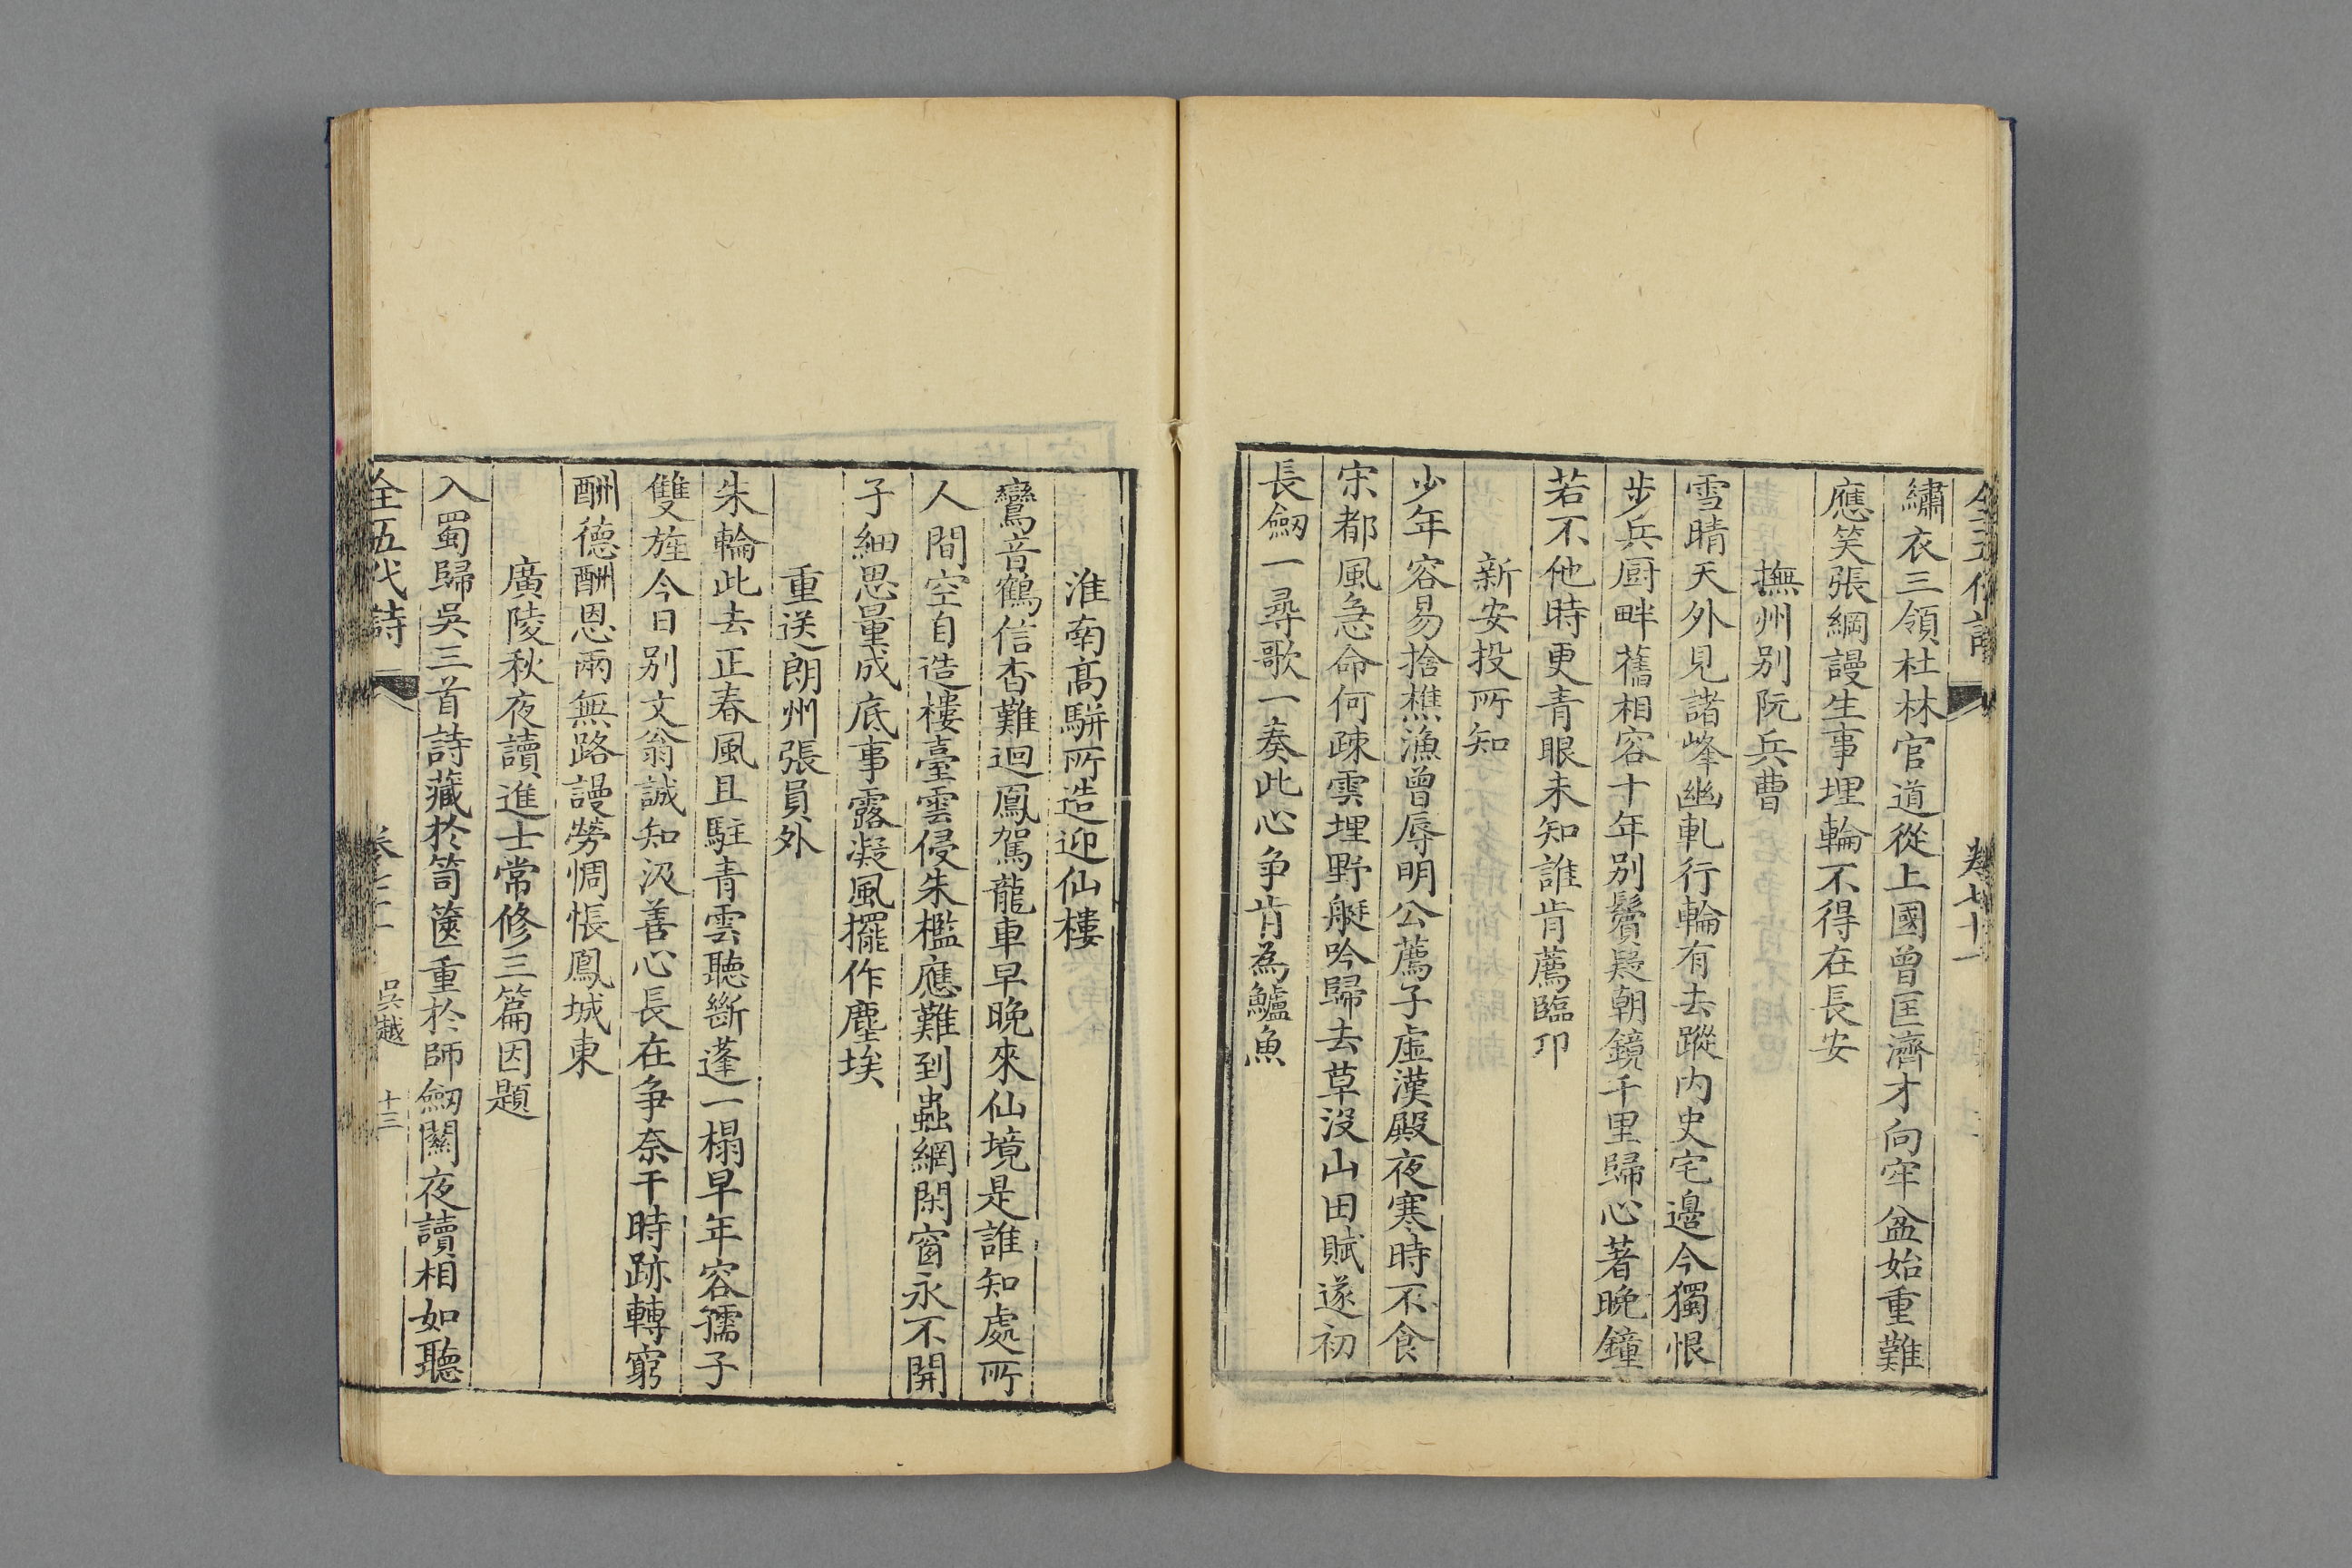 繡衣三領杜林官道從上國曾匡濟才向牢盆始重難
應笑張綱謾生事埋輪不得在長安
撫州別阮兵曹
雪晴天外見諸峰幽軋行輪有去蹤内史宅邊今獨恨
步兵厨畔舊相容十年別鬢疑朝鏡千里歸心著晚鐘
若不他時更青眼未知誰肯薦臨卭
新安投所知
少年容易捨樵漁曾辱明公薦子虛漢殿夜寒時不食
宋都風急命何疎雲埋野艇吟歸去草没山田賦遂初
長劒一尋歌一奏此心争肯為鱸魚
淮南髙駢所造迎仙樓
鸞音鶴信杳難迴鳳駕龍車早晚來仙境是誰知處所
人間空自造樓臺雲侵朱檻應難到蟲網閑窗永不開
子細思量成底事露凝風擺作塵埃
重送朗州張員外
朱輪此去正春風且駐青雲聽斷蓬一榻早年容孺子
雙旌今日別文翁誠知汲善心長在争奈干時跡轉窮
酬德酬恩兩無路謾勞惆悵鳳城東
廣陵秋夜讀進士常修三篇因題
入蜀歸吳三首詩藏於笥篋重於師劒關夜讀相如聽
全五代詩 吳越 十三